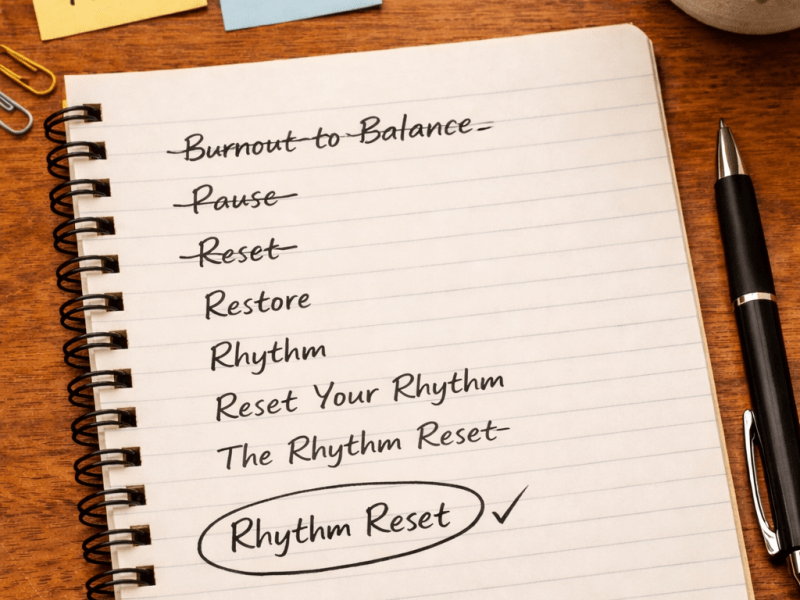 Burnout to Balance
Pause
Reset
Restore
Rhythm
Reset Your Rhythm
The Rhythm Reset
Rhythm Reset ✓